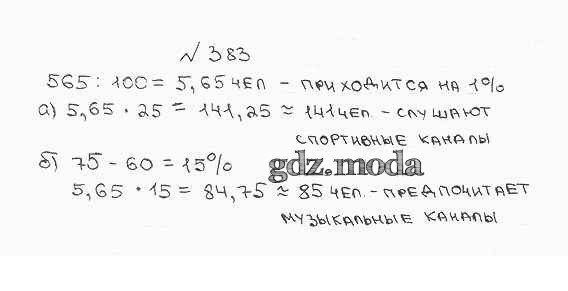 № 383
565 : 100 = 5,65 чел - приходится на 1%
а) 5,65 · 25 = 141,25 ≈ 141 чел. - слушают
спортивные каналы
б) 75 - 60 = 15%
gdz.moda
5,65 · 15 = 84,75 ≈ 85 чел. - предпочитает
музыкальные каналы